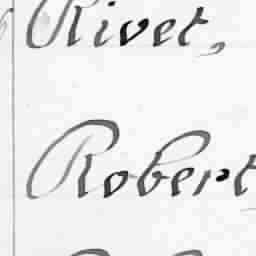 Rivet,
Robert